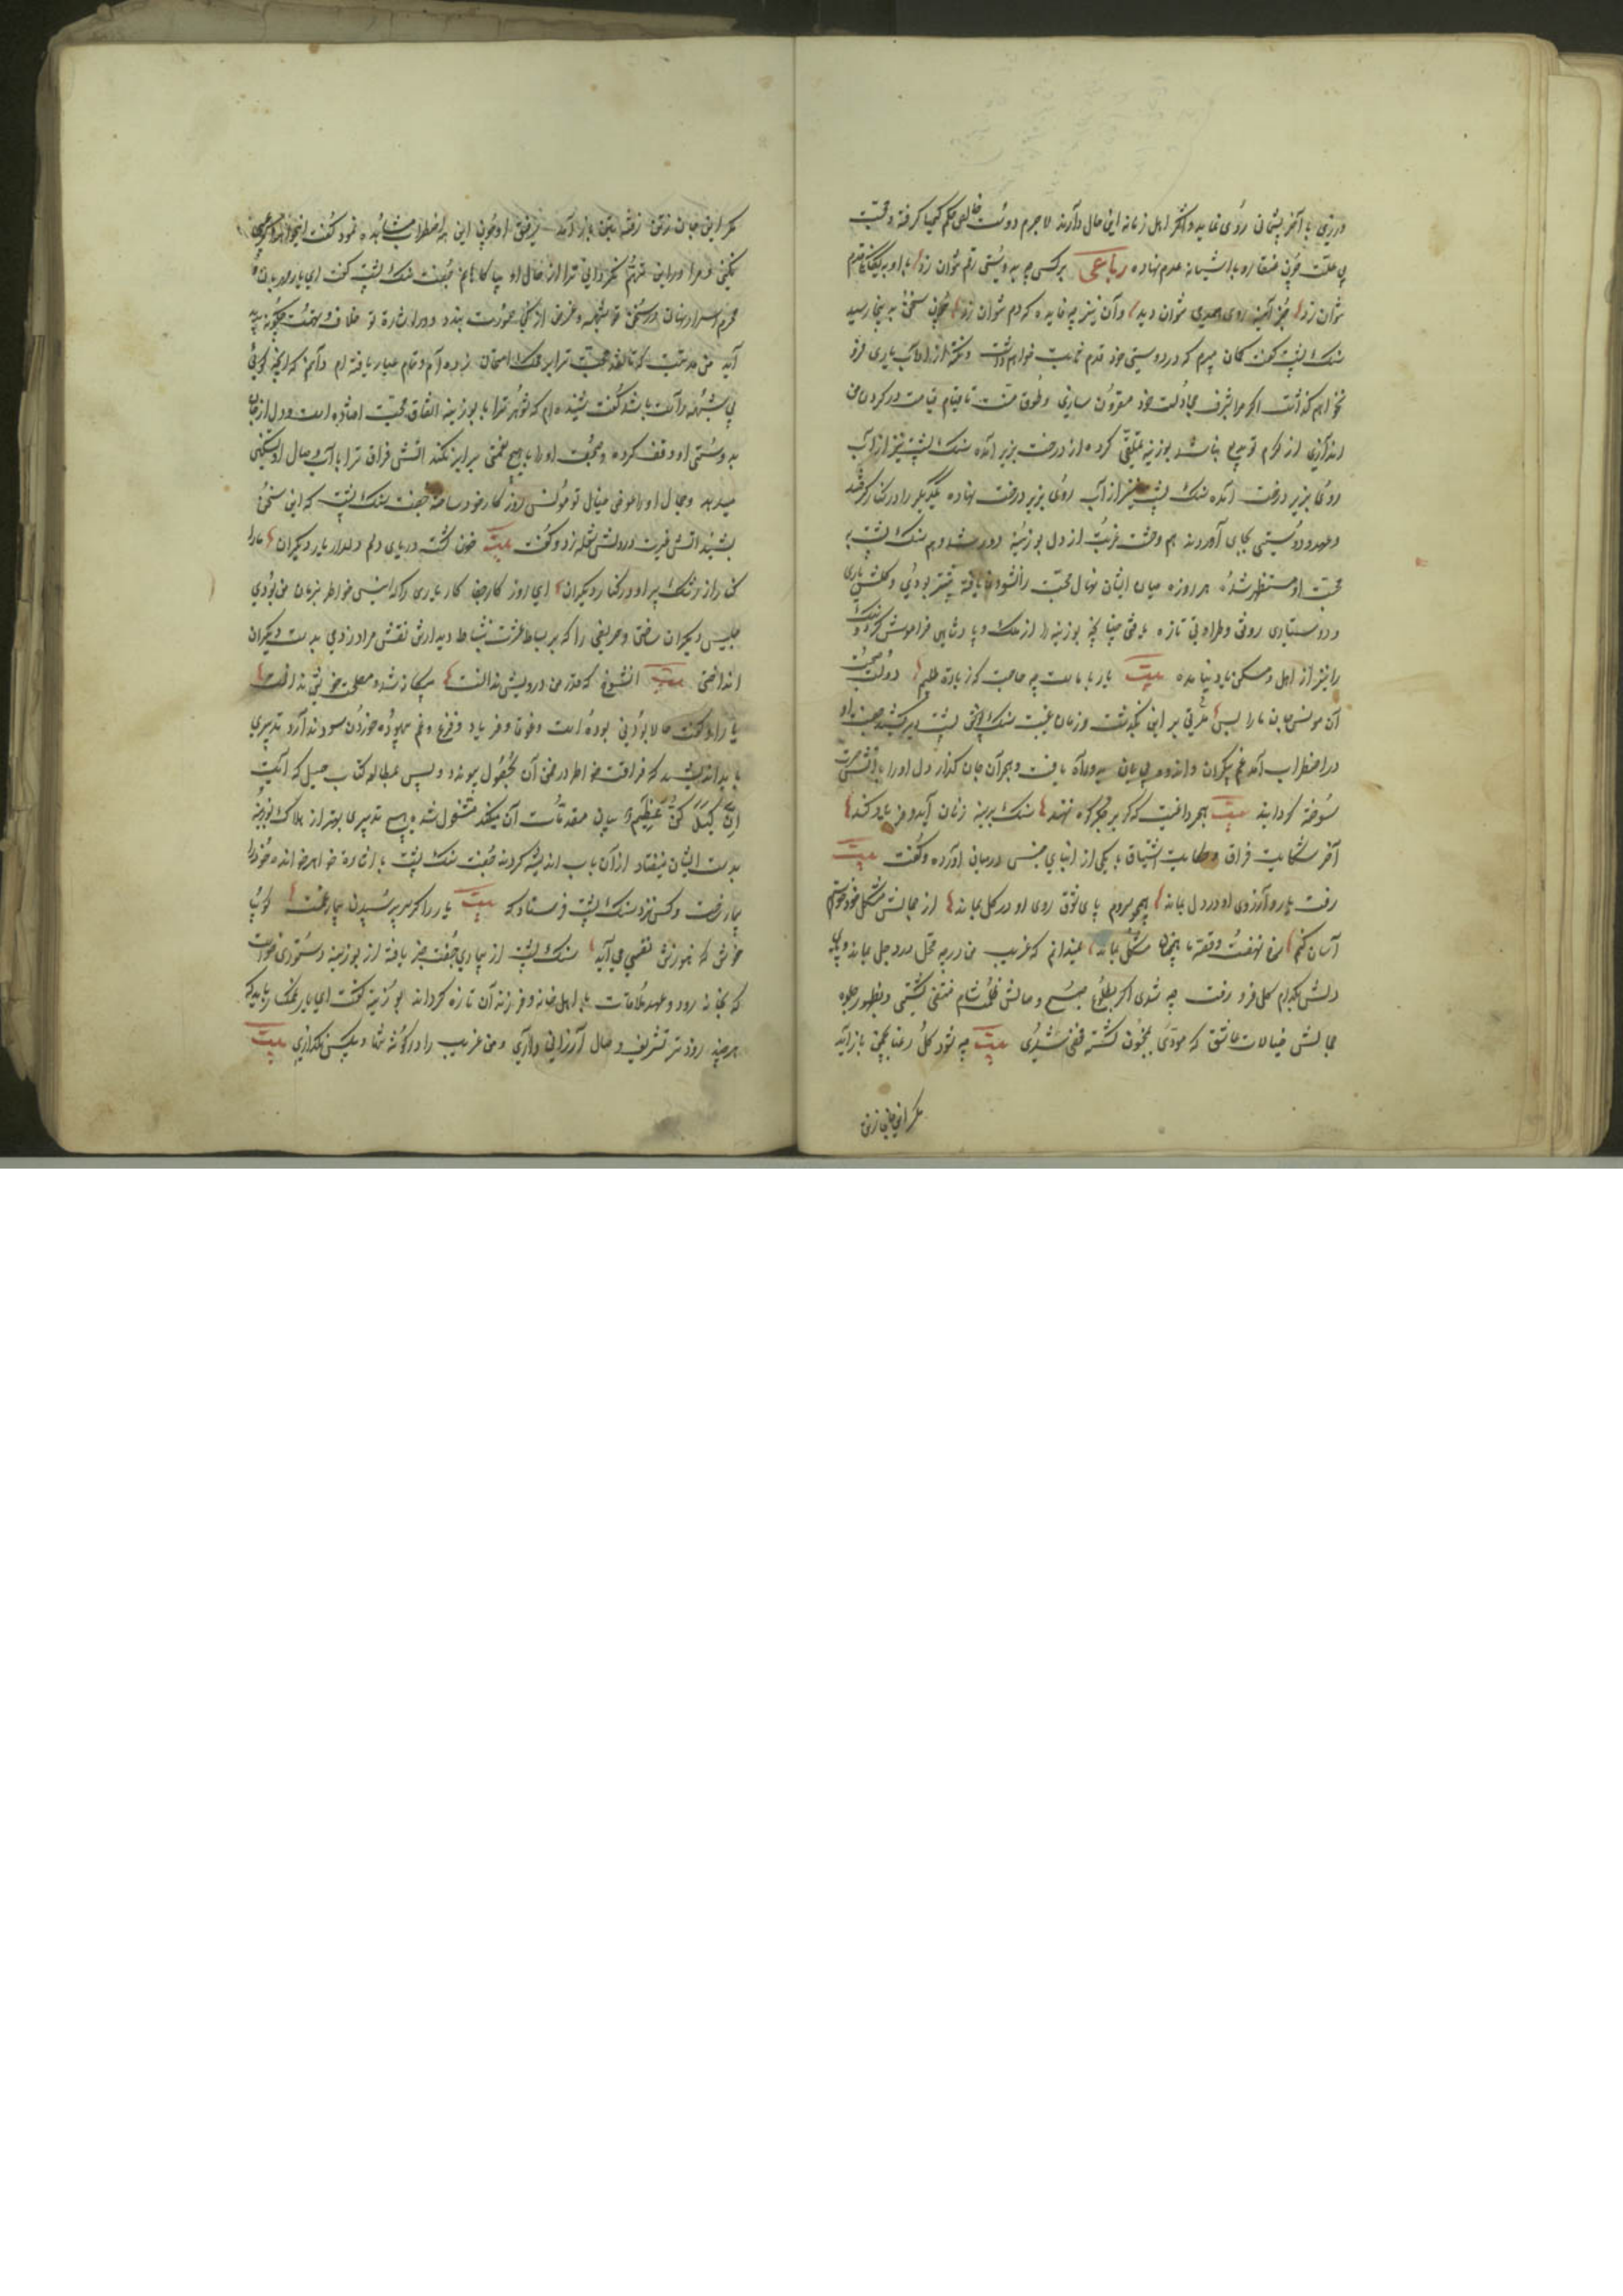 ورزی با آخر پشیمانی روی نماید و اکثر اهل زمانه این حال دارند لا جرم دوست خالص حکم کیمیا گرفته و محبت
بی علت چون عنقا رو باشیانه عدم نهاده رباعی بر کس چه به دوستی رقم نتوان زد با او به یگانگی قدم
نتوان زد جز آینه روی همدمی نتوان دید وآن نیز چه فایده که دم نتوان زد چون سخن به اینجا رسید
سنک پشت کفت کمان میبرم که در دوستی خود قدم ثابت خواهم داشت و نکته از آداب یاری فرو
نخواهم کذاشت اگر مرا بشرف مجادلت خود مقرون سازی و طوق منت تا قیام قیامت در کردن من
اندازی از کرم تو بدیع نباشد بوزینه تملقی کرده از درخت بزیر آمده سنک پشت نیز از آب
روی بزیر درخت آمده سنک پشت نیز از آب روی بزیر درخت نهاده یکدیکر را در کنار کرفتند
وعهد دوستی بجای آوردند هم وحشت غربت از دل بوزینه دور شد و هم سنک پشت به
محبت او مستظهر شد هر روزه میان ایشان نهال محبت را نشو و نما یافته بیشتر بودی و کلشن یاری
و دوستداری رونق وطراوتی تازه یافتی چنانچه بوزینه را از ملک و پادشاهی فراموش کرد و سنک پشت
را نیز از اهل و مسکن یاد نیامده بیت یار با ماست چه حاجت که زیادة طلبیم دولت صحبت
آن مونس جان ما را بس مدتی بر این بکذشت و زمان غیبت سنک پشت دیر کشید جفت او
در اضطراب آمد غم بیکران و اندوه بی پایان بدو راه یافت و هجر آن جان کداز دل او را بآتش حسرت
سوخته کردانید بیت هجر داغیست که کر بر جگر کوه نهند سنک بر سینه زنان آید و فریاد کند
آخر شکایت فراق و حکایت اشتیاق با یکی از ابنای جنس در میان آورده و کفت بیت
رفت یار و آرزوی او در دل بماند همچو سروم پای شوق روی او در کل بماند از جمالش مشکل خود خواستم
آسان کنم رخ نهفت و قصه ما همچنان مشکل بماند نمیدانم که غریب من در چه محل بد دل بماند و پای
دلش بکدام کل فرو رفت چه شدی اکر بطلوع صبح وصالش ظلمت شام منتفی کشتی و بظهور جلوه
جمالش خیالات عاشق که مودی بجنون کشته منفی شدی بیت چه شود کل رعنا بچمن باز آید
مکر این جان ز تن
مکر این جان ز تن رفته بتن باز آید رفیق او چون این همه اضطراب مشاهده نمود کفت ای خواهر اکر عیب
نکنی و مرا در این متهم نکردانی ترا از حال او بیاکاهانم جفت سنک پشت کفت ای یار مهربان و
محرم اسرار نهان در سخن تو شبهه و غرض از کجا صورت بندد و در اشارة تو خلاف و تهمت چکونه پدید
آید من مدتیست که نقد محبت ترا بر محک امتحان زده ام و تمام عیار یافته ام دانم که آنچه کویی
بی شبهه راست باشد کفت شنیده ام که شوهر ترا با بوزینه اتفاق محبت افتاده است و دل از جان
به دوستی او وقف کرده و صحبت او را با هیچ نعمتی برابر نکند آتش فراق ترا بآب وصال او تسکین
میدهد و جمال او را عوض خیال تو مونس روز کار خود ساخته جفت سنک پشت که این سخن
بشنید آتش غیرت در دلش شعله زد و کفت بیت خون کشت دریای دلم و دلدار یار دیکران ما را
کنار از اشک پر او در کنار دیکران ای روز کار جفا کار یاری را که انیس خواطر پریشان من بودی
جلیس دیکران ساختی و حریفی را که بر بساط عشرت بنشاط دیدارش نقش مراد زدی بدست دیکران
انداختی بیت آن شوخ که قدر من درویش ندانست بیکانه شد و مصلحت خویش ندانست
یارش کفت حالا بودنی بوده است و فریاد و فزع و غم بیهوده خوردن سود ندارد تدبیری
باید اندیشید که فراغت خواطر در ضمن آن بحصول پیوندد و پس بمطالعه کتاب حیل که آیت
إن كيدكن عظيم بیان مقدمات آن میکند مشغول شده هیچ تدبیری بهتر از هلاک بوزینه
بدست ایشان نیفتاد از آن باب اندیشه کردند جفت سنک پشت باشاره خواهر خوانده خود را
بیمار ساخت و کس نزد سنک پشت فرستاد که بیت یار را کر سر پرسیدن بیمار غمست کو بیا
خوش که هنوزش نفسی می آید سنک پشت از بیماری جفت خبر یافته از بوزینه دستوری خواست
که بخانه رود و عهد ملاقات با اهل خانه و فرزندان تازه کرداند بوزینه کفت ای یار غمکسار باید که
هر چند زودتر تشریف وصال ارزانی داری و من غریب را در کوشه تنها و بیکس نکذاری بیت